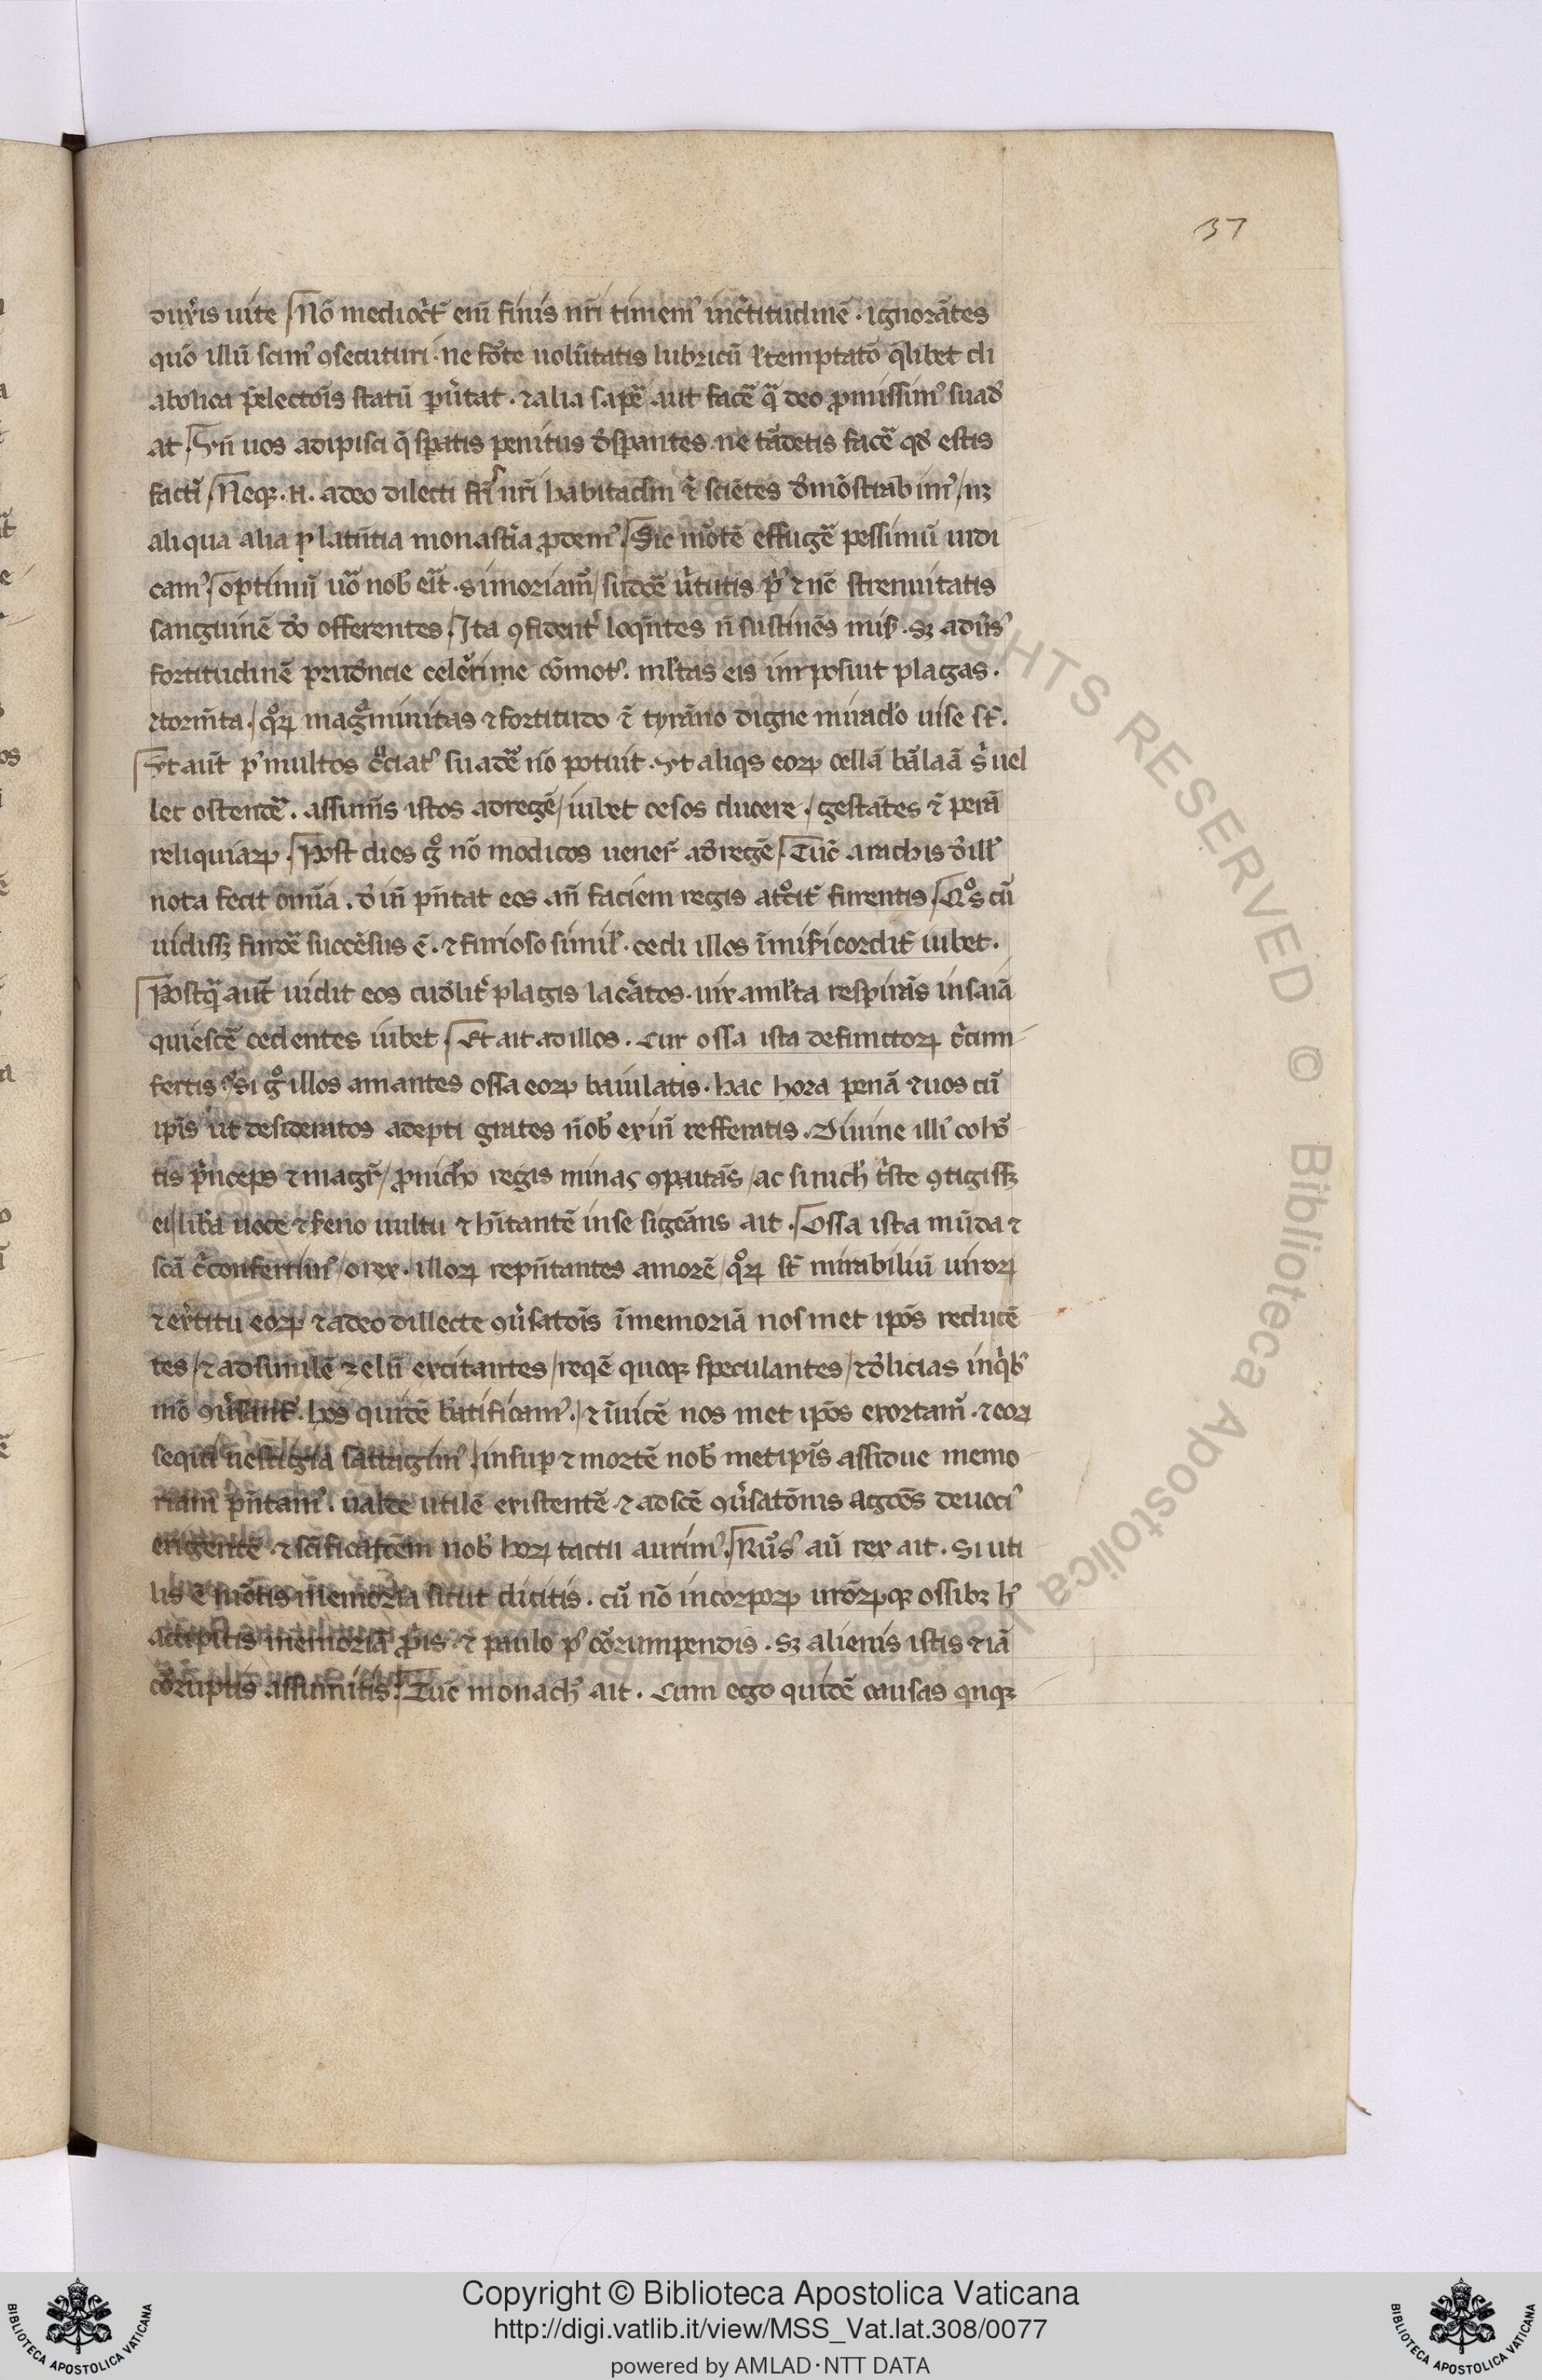 37
duxͥis uite Nō medioc̉t̃ eni͂ finis nr̃i timem⁹ inc̉titudinē · ignorātes
quō illū scim⁹ ꝯsecuturi · ne fo͛te uolūtatis lubricū ƚ temptatō q̄libet di
abolica p̄electōis statū pu̓tat · ⁊ alia sape͛ aut face͛ qᷓ deo ꝓmissim⁹ suad̓
at uos adipisci q̄ sꝑatis penitus d̓sꝑantes ne ta͛detis face͛ qd̓ estis
factu͛ Neqꝫ · n̄ · adeo dilecti nr̄i habitaclm̄ ⁊ sciētes d̓mōstrabim⁹ / nꝫ
aliqua alia ꝑ latn̄tia monast̓ia ꝓdem⁹ Sic mo͛tē effuge͛ pessimū iudi
cam⁹ optimū uo͛ nob̓ ei͛t · si moriam͛ / sudoe͛ u̓tutis p͛⁹ ⁊ nc̄ strenuitatis
sanguinē d̓o offerentes Ita ꝯfident̓ loqn̄tes n̄ sustinēs mis̓ · sꝫ adu̓s⁹
fortitudinē prud̓ncie cele͛rime cōmot⁹ · ml̓tas eis imposiut plagas ·
⁊ torm̄ta / qͦꝝ magͣminitas ⁊ fortitudo ē tyrāno digne miraclo uise st̄ ·
Vt aut̄ p⁹ multos c̓ciat⁹ suade͛ nō potuit · Vt aliqs eorꝝ cellā bᷓlaā s̓ uel
let ostende͛ · assumēs istos ad regē / iubet cesos ducere / gestātes ⁊ perā
reliquiarꝝ Post dies gͦ nō modicos uener̄ ad regē Tūc arachis d̓ ill̓
nota fecit omīa · d̓in p̄n̄tat eos an̄ faciem regis atͦcit̓ furentis Qͦs cū
uidissꝫ furoe͛ succēsus ē · ⁊ furioso simil̓ · cedi illos īmis̓icordit̓ iubet ·
Postqᷓ aut̄ uidit eos crud̓lit̓ plagis lac̓atos · uix a ml̓ta respirās insaiā
quiesce͛ cedentes iubet Et ait ad illos · Cur ossa ista defunctorꝝ c̓cum
fertis si gͦ illos amantes ossa eorꝝ baiulatis · hac hora penā ⁊ uos cū
ip̄is ut desideratos adepti grates n̄ob̓ exin̄ refferatis · Diuine illi⁹ coho͛
tis p̓nceps ⁊ magr̄ / ꝓnichͦ regis minas ꝯputās / ac si nich̓ t̓ste ꝯtigissꝫ
ei / lib̓a uoce ⁊ s̓eno uultu ⁊ hītantē in se ait Ossa ista mūda ⁊
scā c̓conferrim⁹ / o rex · illorꝝ repn̄tantes amorē / qͦꝝ st̄ mirabiliū uirorꝝ
⁊ ex̓titū eorꝝ ⁊ a deo dillecte ꝯu̓satōis ī memoriā nosmet ip̄os reducē
tes / ⁊ ad similē ⁊elū excitantes / reqē quoqꝫ speculantes / ⁊ d̓licias in qͥb⁹
mō ꝯu̓sant͛ · hos quidē b̓atificam⁹ · / ⁊ īuicē nosmet ip̄os exortam͛ · ⁊ eorꝝ
seqi uestigia satagim⁹ / insuꝑ ⁊ mortē nob̓ metip̄is assidue memo
riam p̄n̄tam⁹ · ualde utilē existentē ⁊ ad scē ꝯu̓satōnis agōes deuoci⁹
erigentē · ⁊ scīficatōem nob̓ horꝝ tactu aurim⁹ Ru͛s⁹ aū rex ait · Si uti
lis ē mo͛tis memoria sicut dicitis · cu͛ nō in corporꝝ uro͛rꝝqꝫ ossibꝫ h⁹
accipitis memoriā ꝓp̄is · ⁊ paulo p⁹ co͛rumpendis · sꝫ alienis istis ⁊ iā
co͛ruptis assumitis Tūc monach⁹ ait · Cum ego quidē causas qͥnqꝫ
RIGHTS RESERVED © Biblioteca Apostolica
BIBLIOTECA APOSTOLICA VATICANA
Copyright © Biblioteca Apostolica Vaticana
http://digi.vatlib.it/view/MSS_Vat.lat.308/0077
powered by AMLAD·NTT DATA
BIBLIOTECA APOSTOLICA VATICANA